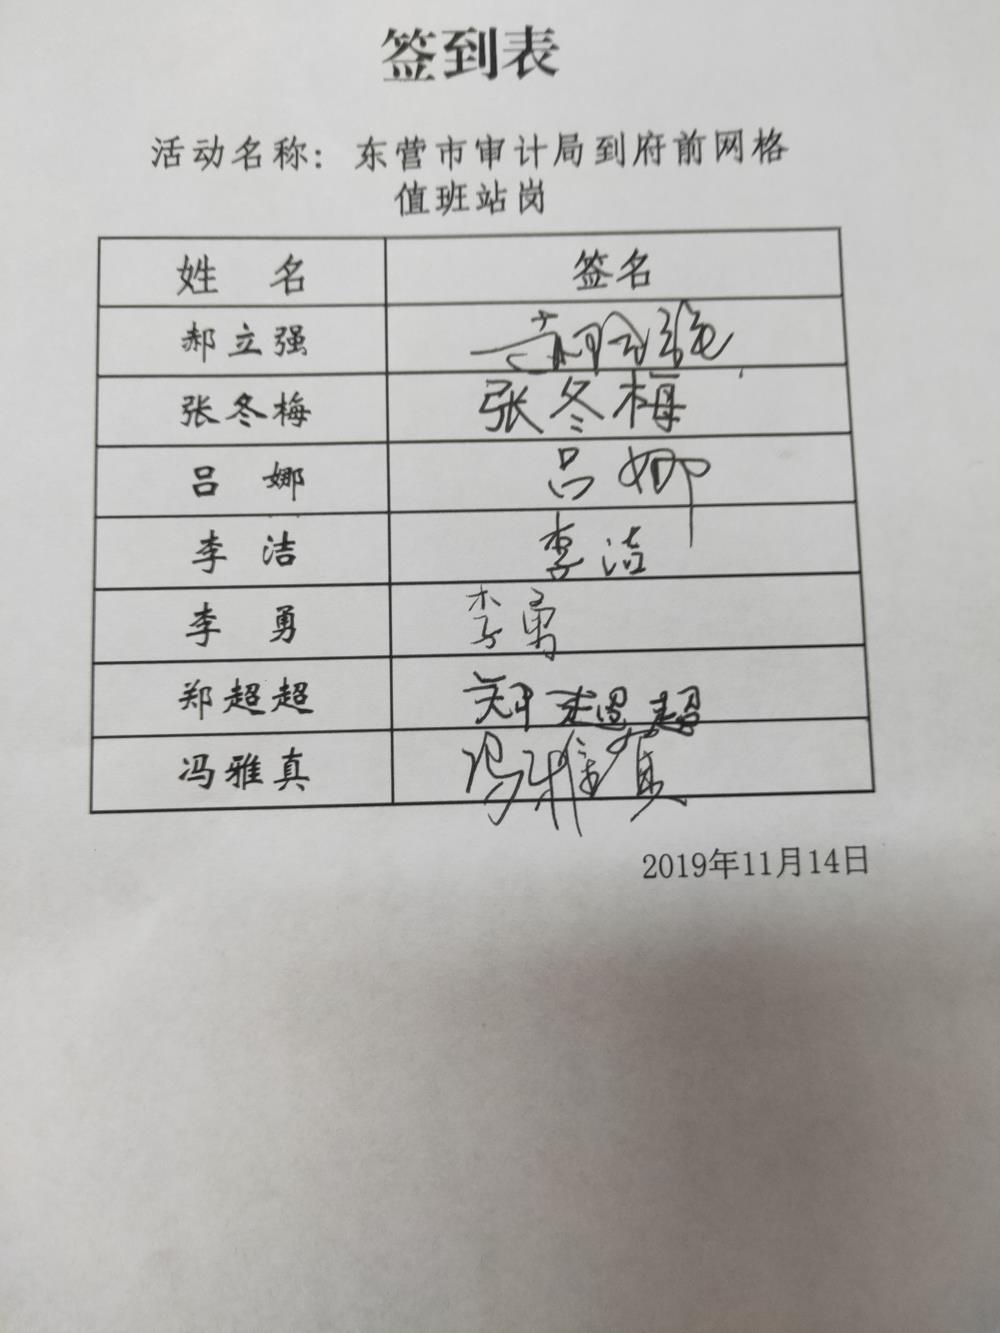 签到表
活动名称：东营市审计局到府前网格
值班站岗
姓 名 签名
郝立强 郝立强
张冬梅 张冬梅
吕 娜 吕娜
李 洁 李洁
李 勇 李勇
郑超超 郑超超
冯雅真 冯雅真
2019年11月14日